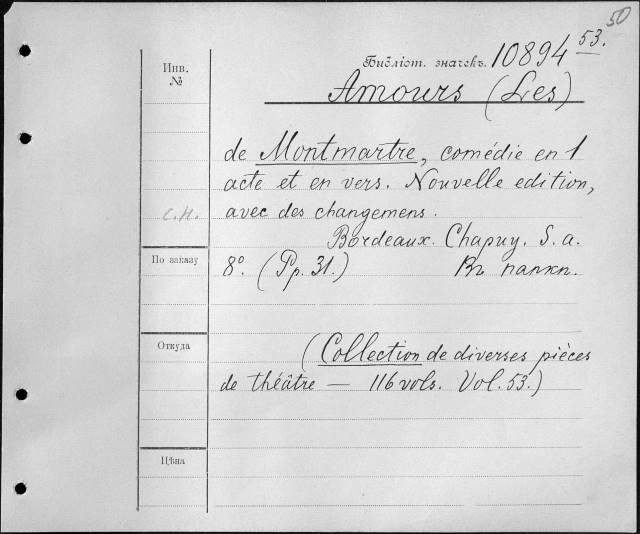 50
Библіот. значекъ. 10894 53.
Инв.
№
Amours (Les)
de Montmartre, comédie en 1
acte et en vers. Nouvelle edition,
С.Н. avec des changemens.
Bordeaux. Chapuy. S. a.
По заказу
8°. (Pp. 31.) Въ папкѣ.
Откуда
(Collection de diverses pièces
de théâtre — 116 vols. Vol. 53.)
Цѣна